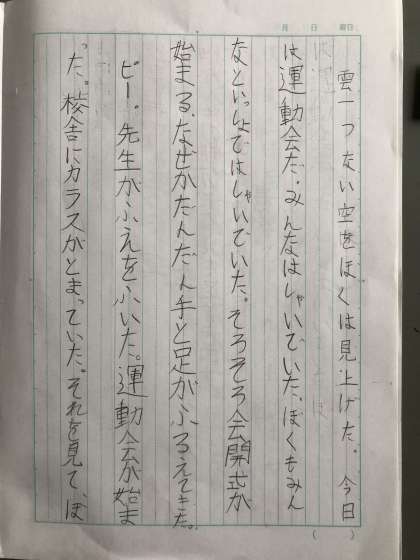 月 日 曜日
雲一つない空をぼくは見上げた。今日
は運動会だ。みんなはしゃいでいた。ぼくもみん
なといっしょではしゃいでいた。そろそろ会開式が
始まる。なぜかだんだん手と足がふるえてきた。
ピー。先生がふえをふいた。運動会が始ま
った。校舎にカラスがとまっていた。それを見て、ぼ
( )